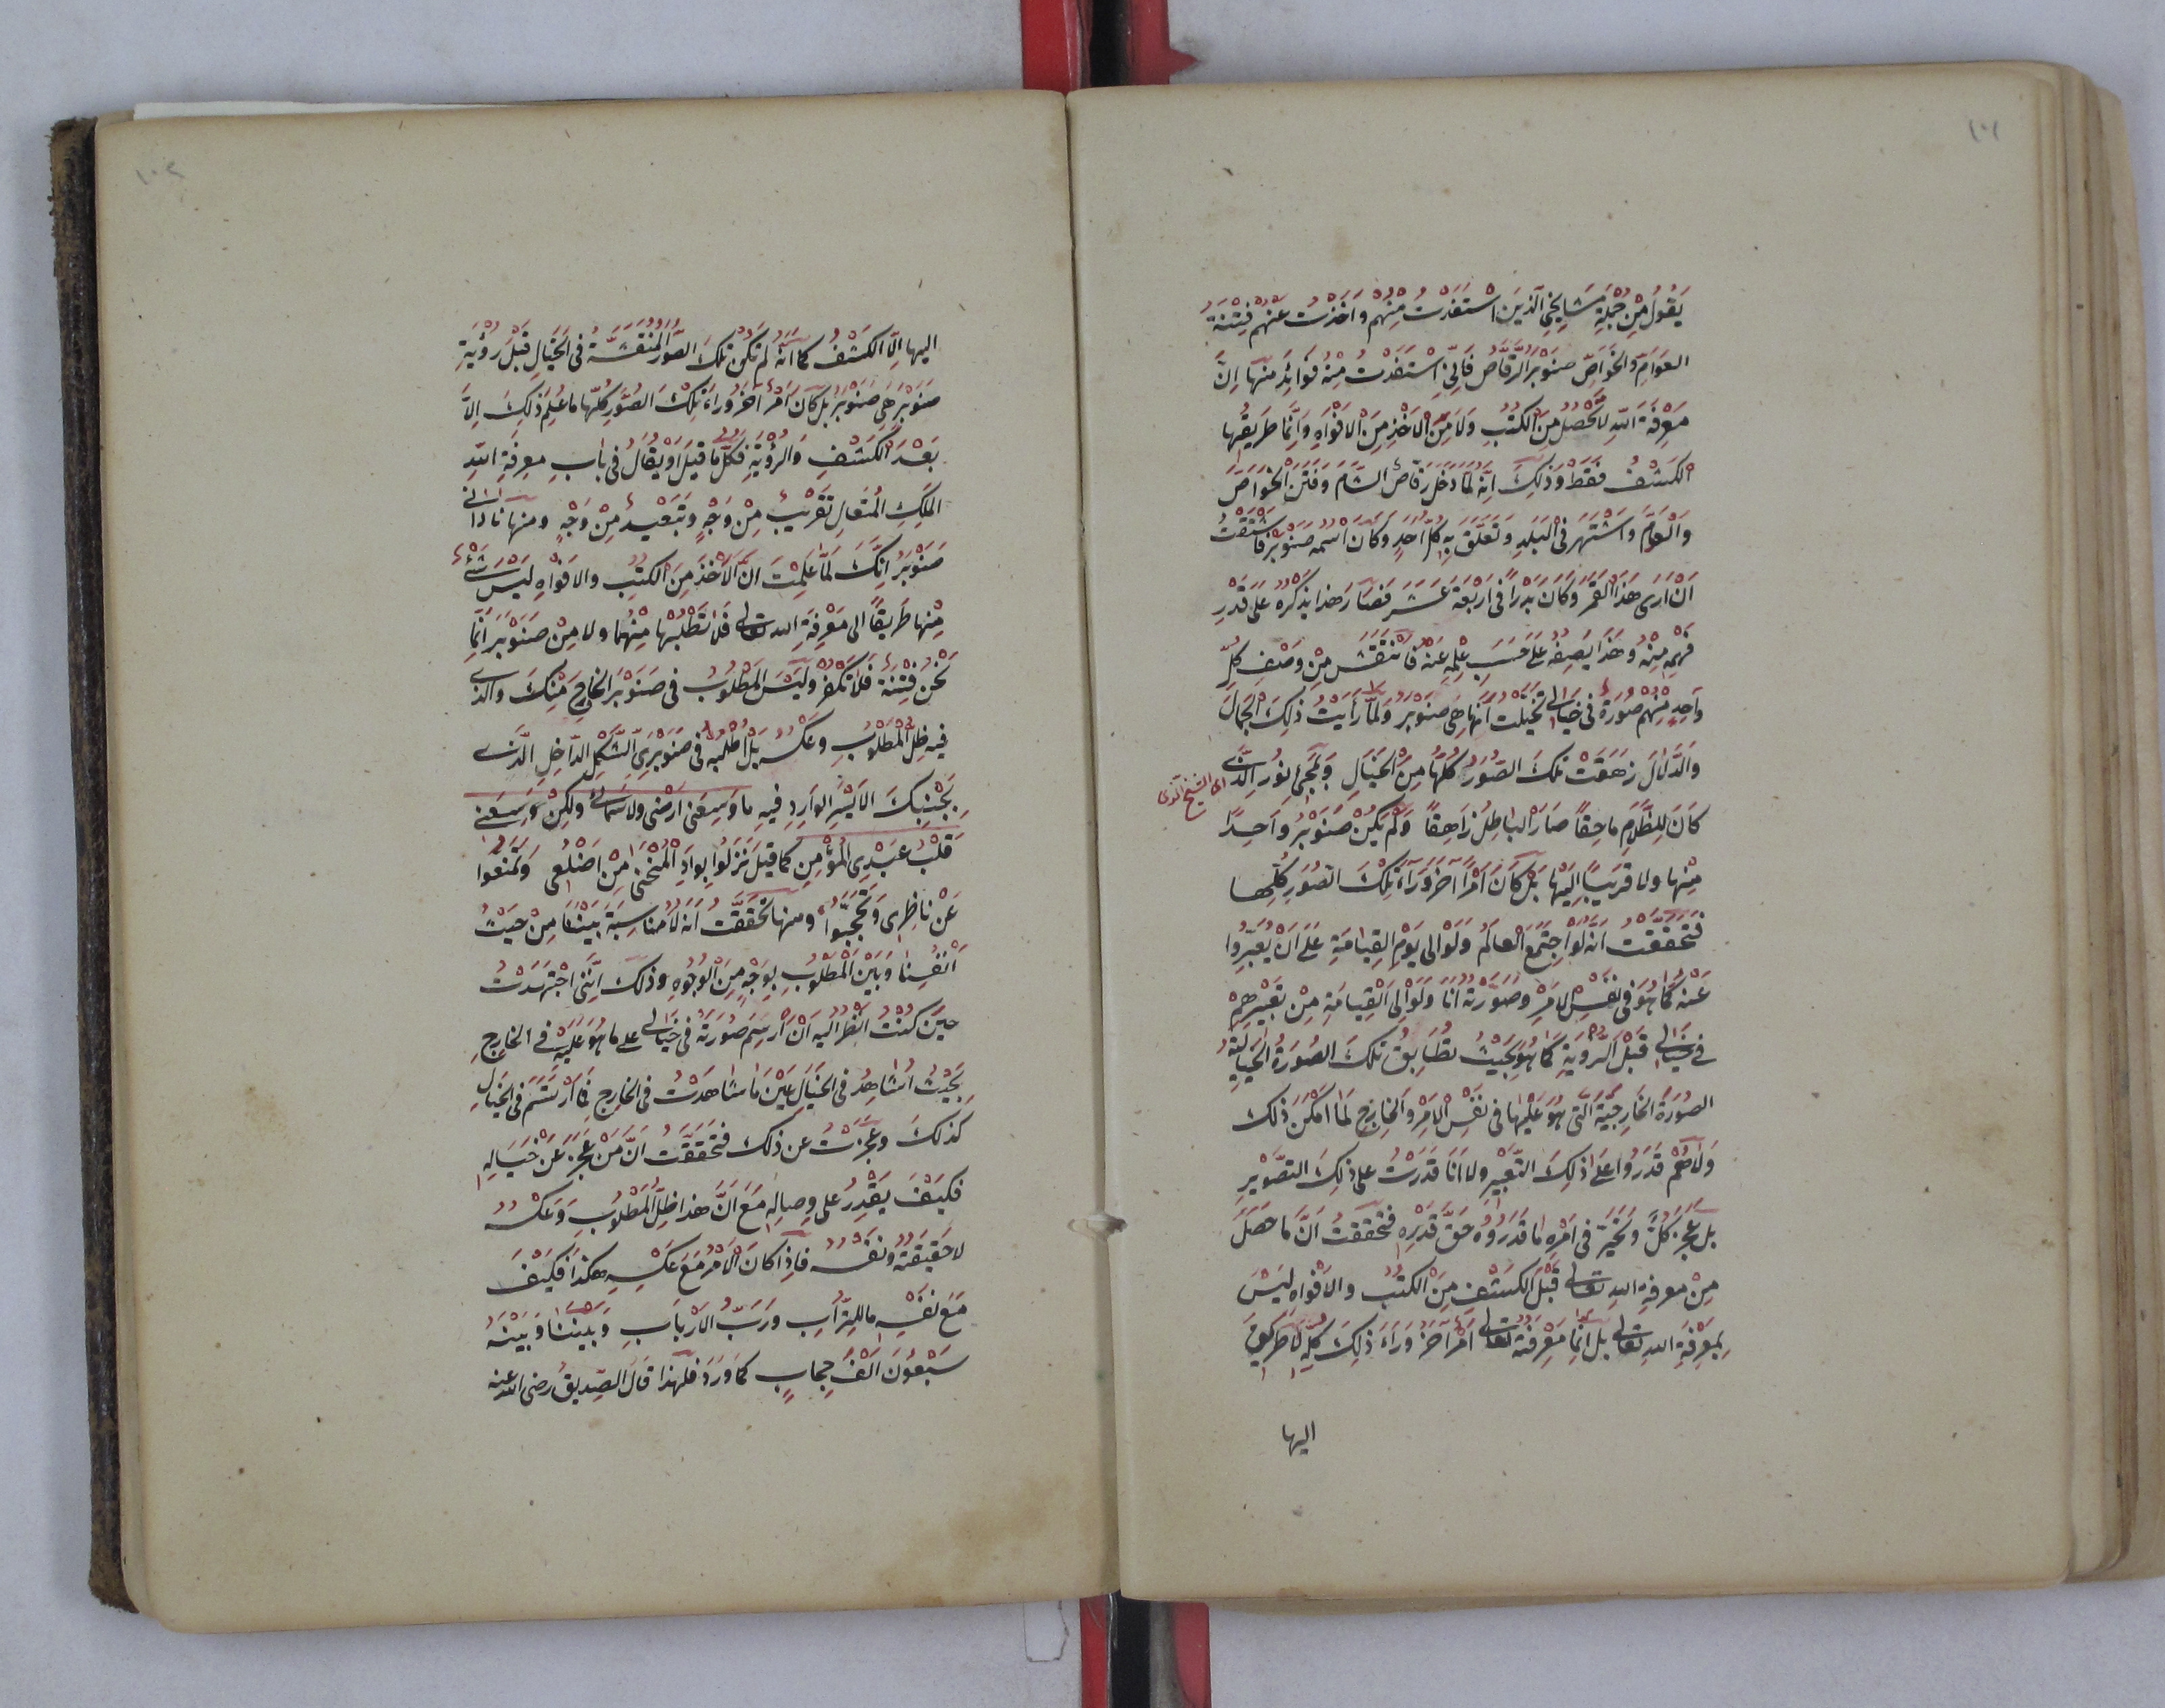 ١٠١
يَقُولُ مِنْ جُمْلَةِ مَشَايِخِي الَّذِينَ اسْتَفَدْتُ مِنْهُمْ وَاَخَذْتُ عَنْهُمْ فِتْنَةُ
العَوَامِّ وَالخَوَاصِّ صَنَوْبَرُ الرَّقَّاصُ فَاِنِّي اسْتَفَدْتُ مِنْهُ فَوَائِدَ مِنْهَا اِنَّ
مَعْرِفَةَ اللهِ لَا تَحْصُلُ مِنَ الكُتُبِ وَلَا مِنَ الْاَخْذِ مِنَ الْاَفْوَاهِ وَاِنَّمَا طَرِيقُهَا
الْكَشْفُ فَقَطْ وَذٰلِكَ اَنَّهُ لَمَّا دَخَلَ رَقَّاصٌ الشَّامَ وَفَتَنَ الْخَوَاصَّ
وَالْعَوَامَّ وَاشْتَهَرَ فِي الْبَلَدِ وَتَعَلَّقَ بِهِ كُلُّ اَحَدٍ وَكَانَ اسْمُهُ صَنَوْبَرْ فَاشْتَقْتُ
اَنْ اَرَى هَذَا الْقَمَرَ وَكَانَ بَدْرًا فِي اَرْبَعَةَ عَشَرَ فَصَارَ هَذَا يَذْكُرُهُ عَلَى قَدْرِ
فَهْمِهِ مِنْهُ وَهَذَا يَصِفُهُ عَلَى حَسَبِ عِلْمِهِ عَنْهُ فَانْتَقَشَ مِنْ وَصْفِ كُلِّ
وَاحِدٍ مِنْهُمْ صُورَةٌ فِي خَيَالِي تَخَيَّلْتُ اَنَّهَا هِيَ صَنَوْبَرُ وَلَمَّا رَاَيْتُ ذٰلِكَ الْجَمَالَ
وَالدَّلَالَ زَهَقَتْ تِلْكَ الصُّوَرُ كُلُّهَا مِنَ الْخَيَالِ وَبِمَجِيْ نُورِ الَّذِي
كَانَ لِلظَّلَامِ مَاحِقًا صَارَ الْبَاطِلُ زَاهِقًا وَلَمْ يَكُنْ صَنَوْبَرُ وَاحِدًا
مِنْهَا وَلَا قَرِيبًا اِلَيْهَا بَلْ كَانَ اَمْرًا آخَرَ وَرَآءَ تِلْكَ الصُّوَرِ كُلِّهَا
فَتَحَقَّقْتُ اَنَّهُ لَوِ اجْتَمَعَ الْعَالَمُ وَلَوْ اِلَى يَوْمِ الْقِيَامَةِ عَلَى اَنْ يُعَبِّرُوا
عَنْهُ كَمَا هُوَ فِي نَفْسِ الْاَمْرِ وَصَوَّرْتُهُ اَنَا وَلَوْ اِلَى الْقِيَامَةِ مِنْ تَعْبِيْرِهِمْ
فِي خَيَالِي قَبْلَ الرُّؤْيَةِ كَمَا هُوَ بِحَيْثُ تُطَابِقُ تِلْكَ الصُّورَةُ الْخَيَالِيَّةُ
الصُّورَةَ الْخَارِجِيَّةَ الَّتِي هُوَ عَلَيْهَا فِي نَفْسِ الْاَمْرِ وَالْخَارِجِ لَمَا اَمْكَنَ ذٰلِكَ
وَلَا هُمْ قَدَرُوا عَلَى ذٰلِكَ التَّعْبِيْرِ وَلَا اَنَا قَدَرْتُ عَلَى ذٰلِكَ التَّصْوِيْرِ
بَلْ عَجَزَ كُلٌّ وَتَحَيَّرَ فِي اَمْرِهِ مَا قَدَرُوهُ حَقَّ قَدْرِهِ فَتَحَقَّقْتُ اَنَّ مَا حَصَلَ
مِنْ مَعْرِفَةِ اللهِ تَعَالَى قَبْلَ الْكَشْفِ مِنَ الْكُتُبِ وَالْاَفْوَاهِ لَيْسَ
بِمَعْرِفَةِ اللهِ تَعَالَى بَلْ اِنَّمَا مَعْرِفَتُهُ تَعَالَى اَمْرٌ آخَرُ وَرَآءَ ذٰلِكَ كُلِّهِ لَا طَرِيقَ
اليها
١٠٢
اليها اِلَّا الْكَشْفُ كَمَا اَنَّهُ لَمْ تَكُنْ تِلْكَ الصُّوَرُ الْمُنْتَقَشَةُ فِي الْخَيَالِ قَبْلَ رُؤْيَةِ
صَنَوْبَرَ هِيَ صَنَوْبَرُ بَلْ كَانَ اَمْرًا آخَرَ وَرَاءَ تِلْكَ الصُّوَرِ كُلِّهَا مَا عُلِمَ ذٰلِكَ اِلَّا
بَعْدَ الْكَشْفِ وَالرُّؤْيَةِ فَكُلُّ مَا قِيلَ اَوْ يُقَالُ فِي بَابِ مَعْرِفَةِ اللهِ
الْمَلِكِ الْمُتَعَالِ تَقْرِيْبٌ مِنْ وَجْهٍ وَتَبْعِيْدٌ مِنْ وَجْهٍ وَمِنْهَا نَادَانِي
صَنَوْبَرُ اِنَّكَ لَمَّا عَلِمْتَ اَنَّ الْاَخْذَ مِنَ الْكُتُبِ وَالْاَفْوَاهِ لَيْسَ شَيْءٌ
مِنْهَا طَرِيقًا اِلَى مَعْرِفَةِ اللهِ تَعَالَى فَلَا تَطْلُبْهَا مِنْهُمَا وَلَا مِنْ صَنَوْبَرَ اِنَّمَا
نَحْنُ فِتْنَةٌ فَلَا تَكْفُرْ وَلَيْسَ الْمَطْلُوبُ فِي صَنَوْبَرَ الْخَارِجِ مِنْكَ وَالَّذِي
فِيهِ ظِلُّ الْمَطْلُوبِ وَعَكْسُهُ بَلْ اُطْلُبْهُ فِي صَنَوْبَرِيِّ الشَّكْلِ الدَّاخِلِ الَّذِي
بِجَنْبِكَ الْاَيْسَرِ الْوَارِدِ فِيهِ مَا وَسِعَنِي اَرْضِي وَلَا سَمَائِي وَلٰكِنْ وَسِعَنِي
قَلْبُ عَبْدِي الْمُؤْمِنِ كَمَا قِيلَ نَزَلُوا بِوَادِ الْمُنْحَنَى مِنْ اَضْلُعِي وَتَمَنَّعُوا
عَنْ نَاظِرِي وَتَحَجَّبُوا وَمِنْهَا تَحَقَّقْتُ اَنَّهُ لَا مُنَاسَبَةَ بَيْنَنَا مِنْ حَيْثُ
اَنْفُسِنَا وَبَيْنَ الْمَطْلُوبِ بِوَجْهٍ مِنَ الْوُجُوهِ وَذٰلِكَ اَنَّنِي اجْتَهَدْتُ
حِيْنَ كُنْتُ اَنْظُرُ اِلَيْهِ اَنْ اَرْسِمَ صُورَتَهُ فِي خَيَالِي عَلَى مَا هُوَ عَلَيْهِ فِي الْخَارِجِ
بِحَيْثُ اُشَاهِدُ فِي الْخَيَالِ عَيْنَ مَا شَاهَدْتُ فِي الْخَارِجِ فَمَا ارْتَسَمَ فِي الْخَيَالِ
كَذٰلِكَ وَعَجَزْتُ عَنْ ذٰلِكَ فَتَحَقَّقْتُ اَنَّ مَنْ عَجَزَ عَنْ خَيَالِهِ
فَكَيْفَ يَقْدِرُ عَلَى وِصَالِهِ مَعَ اَنَّ هَذَا ظِلُّ الْمَطْلُوبِ وَعَكْسُهُ
لَا حَقِيْقَتُهُ وَنَفْسُهُ فَاِذَا كَانَ الْاَمْرُ مَعَ عَكْسِهِ هٰكَذَا فَكَيْفَ
مَعَ نَفْسِهِ مَا لِلتُّرَابِ وَرَبِّ الْاَرْبَابِ وَبَيْنَنَا وَبَيْنَهُ
سَبْعُونَ اَلْفَ حِجَابٍ كَمَا وَرَدَ فَلِهَذَا قَالَ الصِّدِّيقُ رضى الله عنه